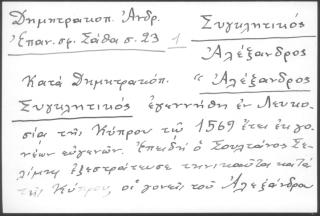 Δημητρακοπ. Ἀνδρ. Συγκλητικὸς
Ἐπαν. σφ. Σάθα σ. 23 1
Ἀλέξανδρος
Κατὰ Δημητρακόπ. "Ἀλέξανδρος
Συγκλητικὸς ἐγεννήθη ἐν Λευκω-
σίᾳ τῆς Κύπρου τῷ 1569 ἔτει ἐκ γο-
νέων εὐγενῶν. Ἐπειδὴ ὁ Σουλτάνος Σε-
λίμης ἐξεστράτευσε τηνικαῦτα κατὰ
τῆς Κύπρου, οἱ γονεῖς τοῦ Ἀλεξάνδρου